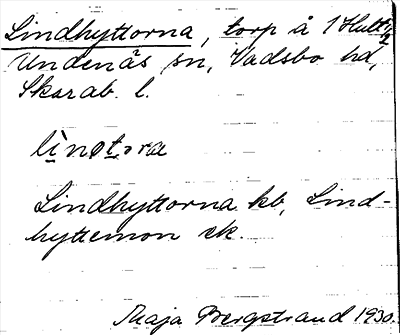 Lindhyttorna, torp å 1 Hult 1/2
Undenäs sn, Vadsbo hd,
Skarab. l.
Lindhyttorna kb, Lind-
hyttemon ek.
Maja Bergstrand 1930.